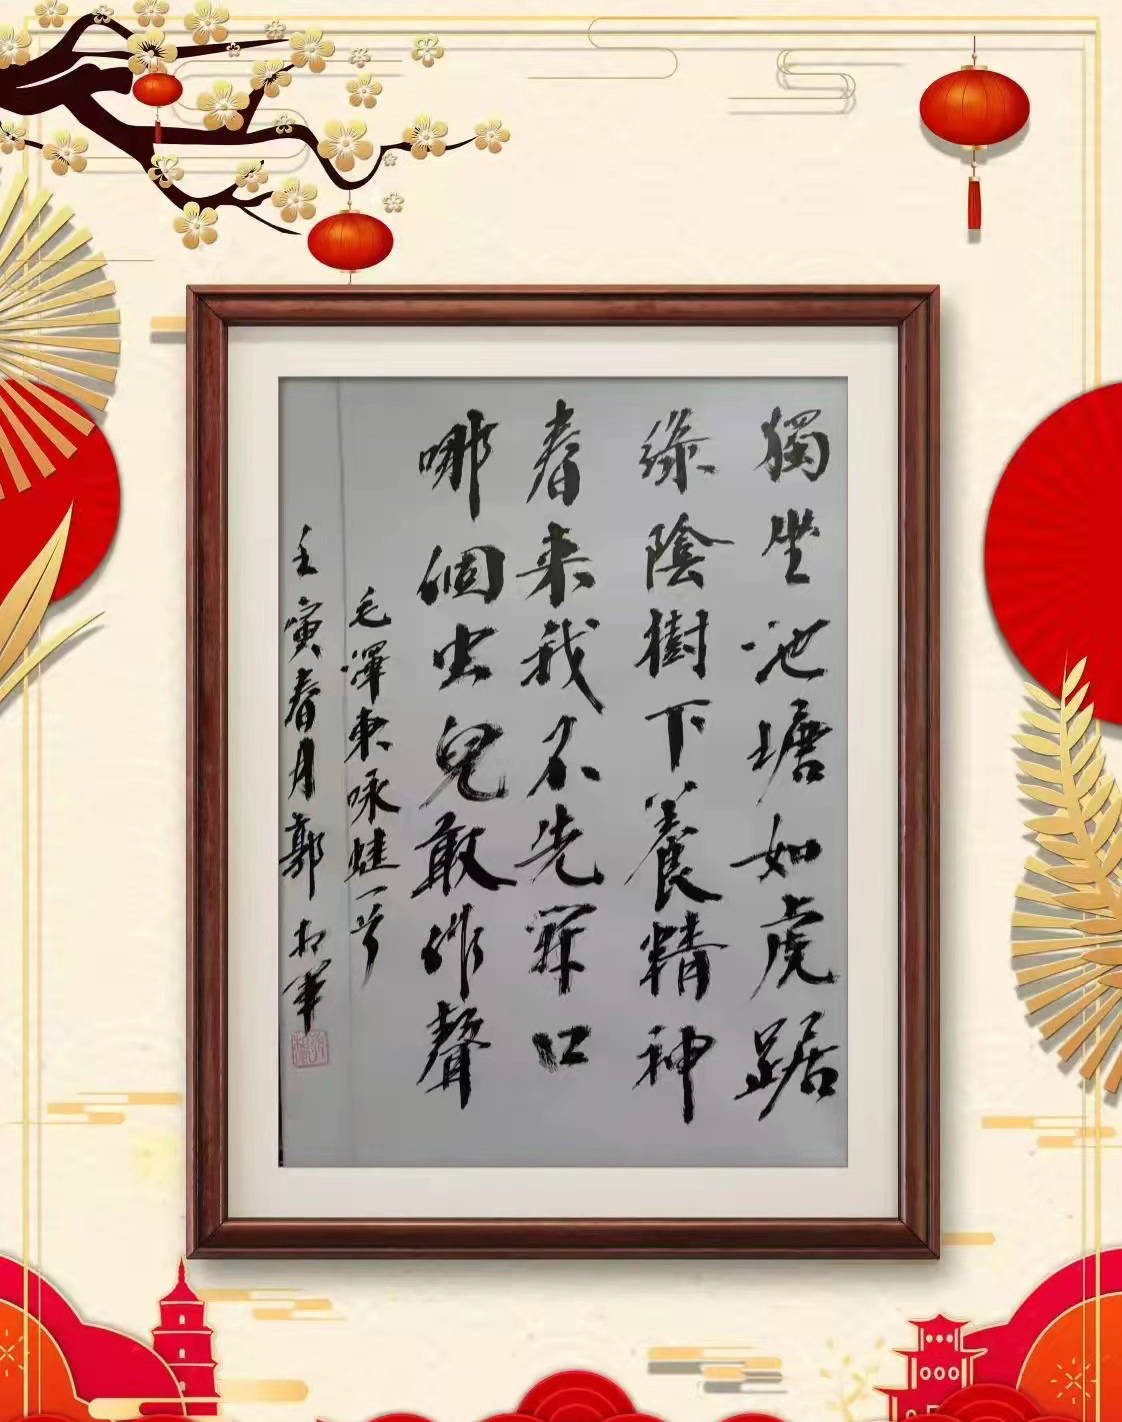 獨坐池塘如虎踞
綠陰樹下養精神
春來我不先開口
哪個虫兒敢作聲
毛澤東咏蛙一首
壬寅春月郭